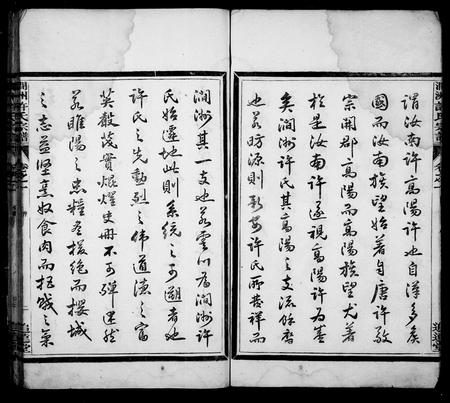 謂汝南許高陽許也自漢多侯
國而汝南族望始著自唐許敬
宗開郡高陽而高陽族望尤著
於是汝南許遂視高陽許為甚
矣澗洲許氏其高陽之支流餘裔
也若昉源則彰許氏所發祥而
澗洲其一支也若雲仍居澗洲許
氏始遷地此則系統之可溯者也
許氏之先勳烈之偉道德之富
英毅茂實焜燿史冊不可殫述然
若睢陽之忠糧盡援絕而櫻城
之志益堅烹奴食肉而抵賊之氣